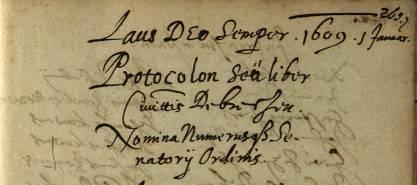 Laus DEO Semper. 1609. 1 Januar.
Protocolon Seü liber
Civittis Debrecẽn.
Nomina Numerusqß Se-
natorÿ Ordinis.